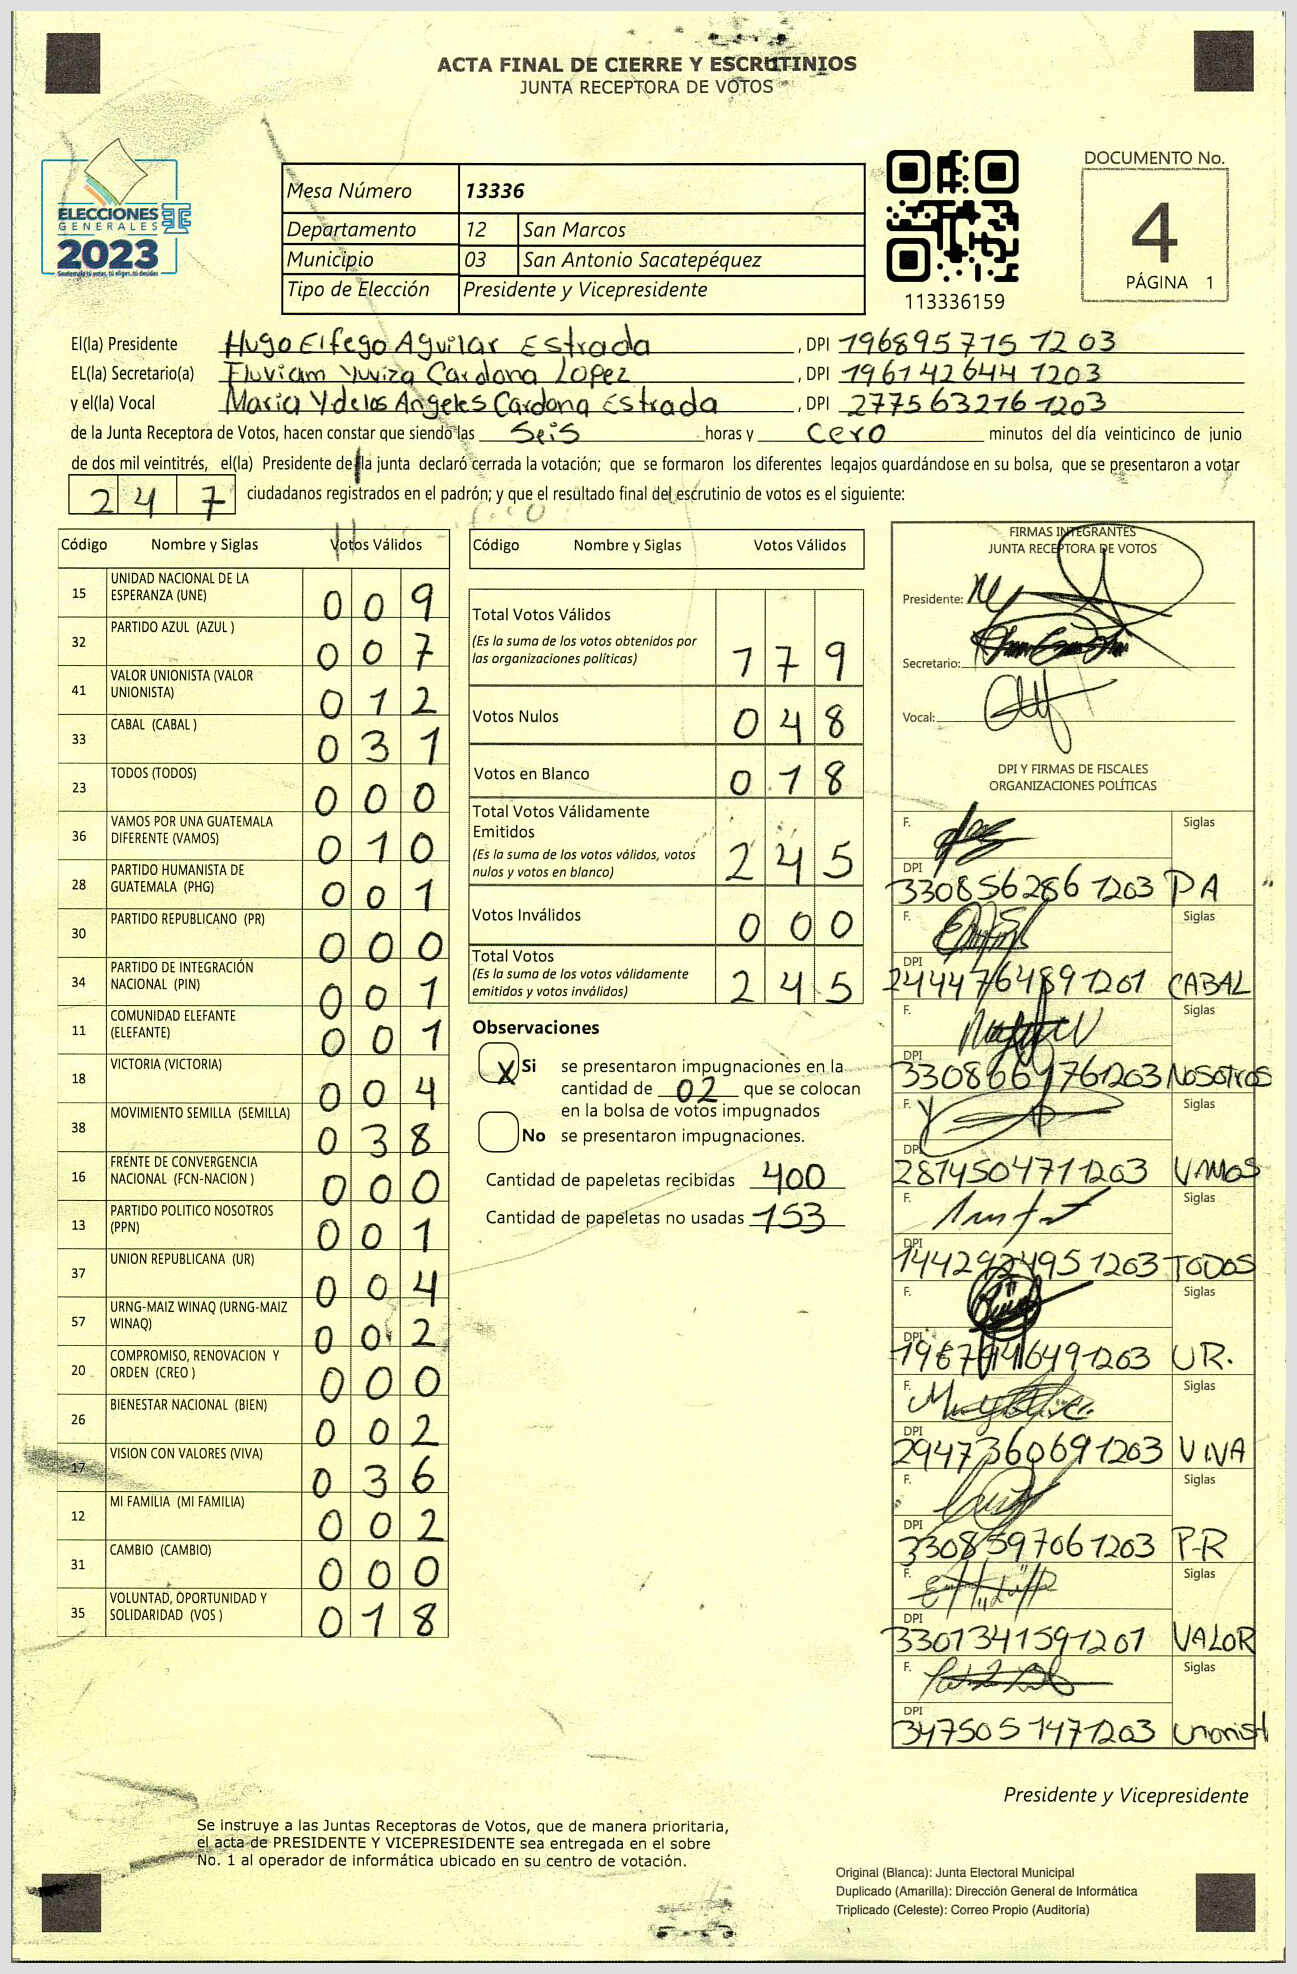 ACTA FINAL DE CIERRE Y ESCRUTINIOS
JUNTA RECEPTORA DE VOTOS
ELECCIONES
GENERALES
2023
Mesa Número 13336
Departamento 12 San Marcos
Municipio 03 San Antonio Sacatepéquez
Tipo de Elección Presidente y Vicepresidente
113336159
DOCUMENTO No.
4
PÁGINA 1
El(la) Presidente Hugo Elfego Aguilar Estrada , DPI 196895715 1203
EL(la) Secretario(a) Fluviam Yuviza Cardona Lopez , DPI 196142644 1203
y el(la) Vocal Maria Y delos Angeles Cardona Estrada , DPI 277563276 1203
de la Junta Receptora de Votos, hacen constar que siendo las Seis horas y cero minutos del día veinticinco de junio
de dos mil veintitrés, el(la) Presidente de la junta declaró cerrada la votación; que se formaron los diferentes legajos guardándose en su bolsa, que se presentaron a votar
247 ciudadanos registrados en el padrón; y que el resultado final del escrutinio de votos es el siguiente:
Código Nombre y Siglas Votos Válidos
15 UNIDAD NACIONAL DE LA
ESPERANZA (UNE) 009
32 PARTIDO AZUL (AZUL ) 007
41 VALOR UNIONISTA (VALOR
UNIONISTA) 012
33 CABAL (CABAL ) 031
23 TODOS (TODOS) 000
36 VAMOS POR UNA GUATEMALA
DIFERENTE (VAMOS) 010
28 PARTIDO HUMANISTA DE
GUATEMALA (PHG) 001
30 PARTIDO REPUBLICANO (PR) 000
34 PARTIDO DE INTEGRACIÓN
NACIONAL (PIN) 001
11 COMUNIDAD ELEFANTE
(ELEFANTE) 001
18 VICTORIA (VICTORIA) 004
38 MOVIMIENTO SEMILLA (SEMILLA) 038
16 FRENTE DE CONVERGENCIA
NACIONAL (FCN-NACION ) 000
13 PARTIDO POLITICO NOSOTROS
(PPN) 001
37 UNION REPUBLICANA (UR) 004
57 URNG-MAIZ WINAQ (URNG-MAIZ
WINAQ) 002
20 COMPROMISO, RENOVACION Y
ORDEN (CREO ) 000
26 BIENESTAR NACIONAL (BIEN) 002
17 VISION CON VALORES (VIVA) 036
12 MI FAMILIA (MI FAMILIA) 002
31 CAMBIO (CAMBIO) 000
35 VOLUNTAD, OPORTUNIDAD Y
SOLIDARIDAD (VOS ) 018
Código Nombre y Siglas Votos Válidos
Total Votos Válidos
(Es la suma de los votos obtenidos por
las organizaciones políticas) 179
Votos Nulos 048
Votos en Blanco 018
Total Votos Válidamente
Emitidos
(Es la suma de los votos válidos, votos
nulos y votos en blanco) 245
Votos Inválidos 000
Total Votos
(Es la suma de los votos válidamente
emitidos y votos inválidos) 245
Observaciones
X Si se presentaron impugnaciones en la
cantidad de 02 que se colocan
en la bolsa de votos impugnados
No se presentaron impugnaciones.
Cantidad de papeletas recibidas 400
Cantidad de papeletas no usadas 153
FIRMAS INTEGRANTES
JUNTA RECEPTORA DE VOTOS
Presidente:
Secretario:
Vocal:
DPI Y FIRMAS DE FISCALES
ORGANIZACIONES POLÍTICAS
F. Siglas
DPI
330856286 1203 PA
F. Siglas
DPI
2444764891201 CABAL
F. Siglas
DPI
1203 NOSOTROS
F. Siglas
DPI
2814504711203 VAMOS
F. Siglas
DPI
1203 TODOS
F. Siglas
DPI
1203 UR.
F. Siglas
DPI
2947360691203 VIVA
F. Siglas
DPI
3308597061203 P-R
F. Siglas
DPI
3301341591201 VALOR
F. Siglas
DPI
3475051471203 Unionist
Presidente y Vicepresidente
Se instruye a las Juntas Receptoras de Votos, que de manera prioritaria,
el acta de PRESIDENTE Y VICEPRESIDENTE sea entregada en el sobre
No. 1 al operador de informática ubicado en su centro de votación.
Original (Blanca): Junta Electoral Municipal
Duplicado (Amarilla): Dirección General de Informática
Triplicado (Celeste): Correo Propio (Auditoría)